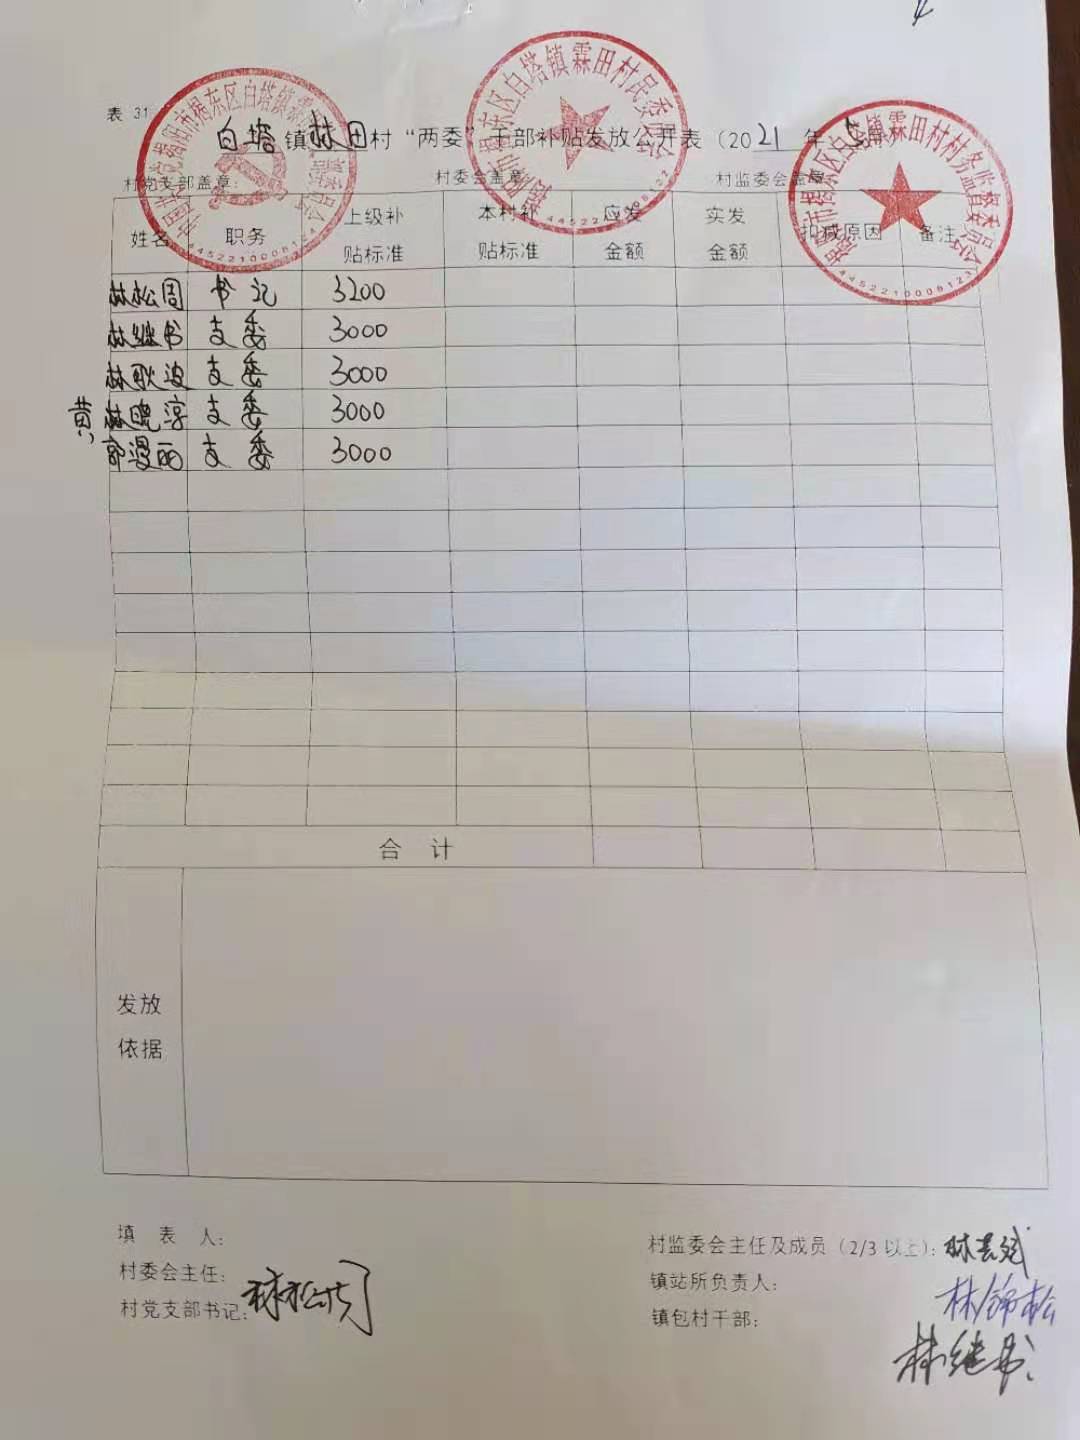 表 31
白塔镇林田村“两委”干部补贴发放公开表（2021年5月）
村党支部盖章：
村委会盖章
村监委会盖章
姓名 职务 上级补贴标准 本村补贴标准 应发金额 实发金额 扣减原因 备注
林松周 书记 3200
林继书 支委 3000
林耿波 支委 3000
黄 林晓淳 支委 3000
郭漫丽 支委 3000
合 计
发放
依据
填 表 人：
村委会主任：
村党支部书记： 林松周
村监委会主任及成员（2/3 以上）：
镇站所负责人： 林锦松
镇包村干部： 林继书
揭阳市揭东区白塔镇霖田村民委员会
揭阳市揭东区白塔镇霖田村村务监督委员会